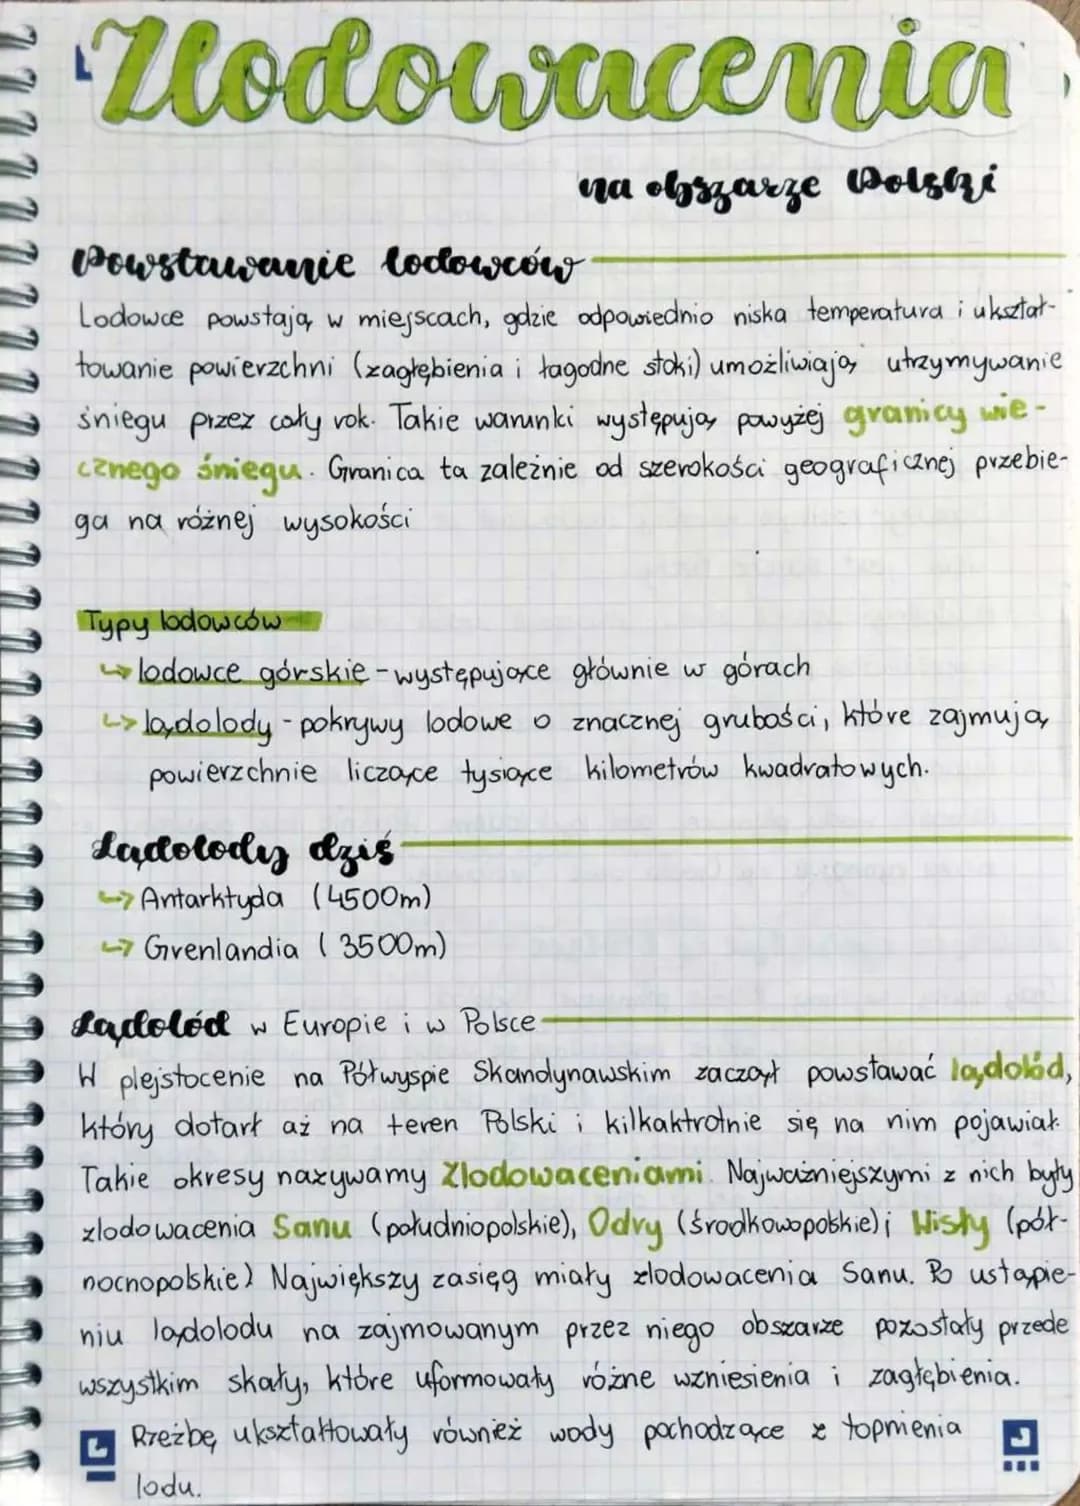 Zlodowacenia
na obszarze Polski
Powstawanie lodowców
Lodowce powstają w miejscach, gdzie odpowiednio niska temperatura i ukształ-
towanie powierzchni (zagłębienia i łagodne stoki) umożliwiają utrzymywanie
śniegu przez cały rok. Takie warunki występują powyżej granicy wie-
cznego śniegu. Granica ta zależnie od szerokości geograficznej przebie-
ga na różnej wysokości
Typy lodowców
↳ lodowce górskie - występujące głównie w górach
↳ lądolody - pokrywy lodowe o znacznej grubości, które zajmują
powierzchnie liczące tysiące kilometrów kwadratowych.
Lądolody dziś
↳ Antarktyda (4500m)
↳ Grenlandia (3500m)
Lądolód w Europie i w Polsce
W plejstocenie na Półwyspie Skandynawskim zaczął powstawać lądolód,
który dotarł aż na teren Polski i kilkaktrotnie się na nim pojawiał.
Takie okresy nazywamy Zlodowaceniami. Najważniejszymi z nich były
zlodowacenia Sanu (południopolskie), Odry (środkowopolskie) i Wisły (pół-
nocnopolskie) Największy zasięg miały zlodowacenia Sanu. Po ustąpie-
niu lądolodu na zajmowanym przez niego obszarze pozostały przede
wszystkim skały, które uformowały różne wzniesienia i zagłębienia.
Rzeźbę ukształtowały również wody pochodzące z topnienia
lodu.